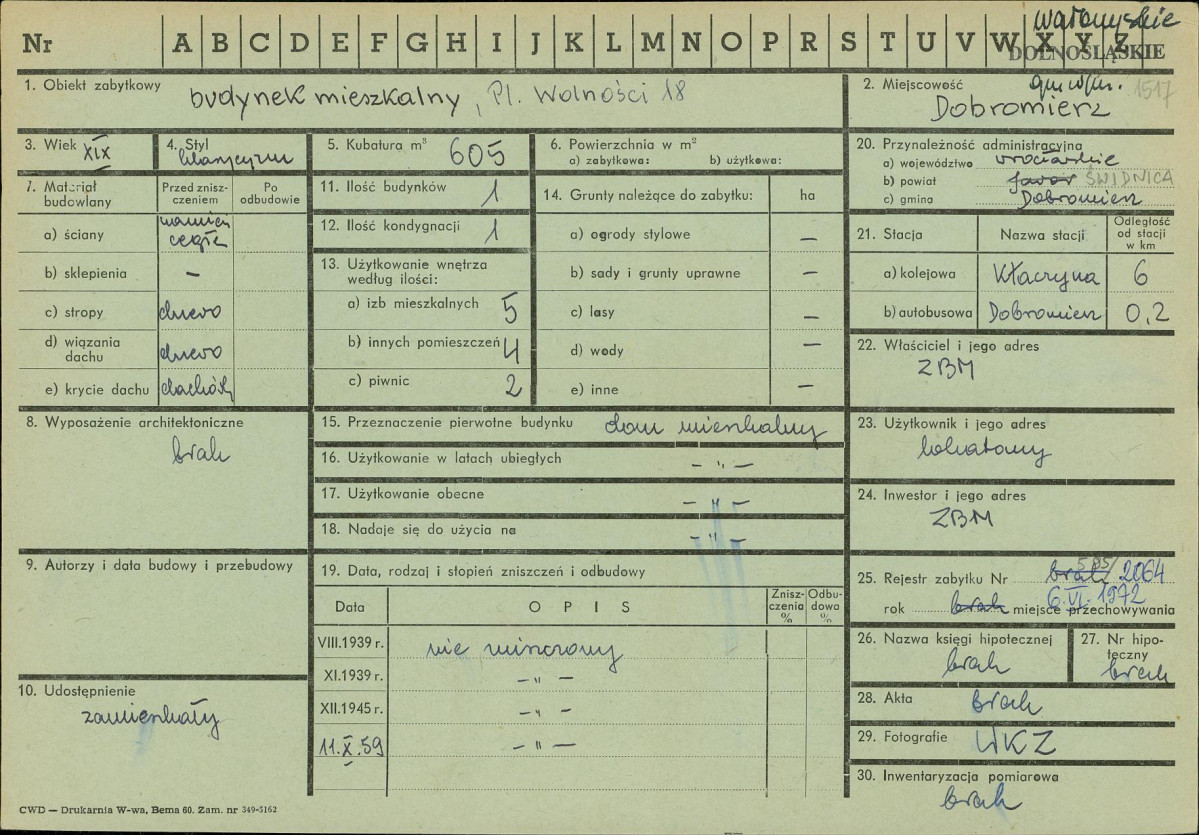 wałbrzyskie
Nr A B C D E F G H I J K L M N O P R S T U V W X Y Z
DOLNOŚLĄSKIE
1. Obiekt zabytkowy budynek mieszkalny, Pl. Wolności 18
2. Miejscowość 1517
Dobromierz
3. Wiek XIX
4. Styl klasycyzm
5. Kubatura m³ 605
6. Powierzchnia w m²
a) zabytkowa: b) użytkowa:
7. Materiał budowlany
Przed zniszczeniem
Po odbudowie
a) ściany kamień cegła
b) sklepienia –
c) stropy drewno
d) wiązania dachu drewno
e) krycie dachu dachówka
11. Ilość budynków 1
12. Ilość kondygnacji 1
13. Użytkowanie wnętrza według ilości:
a) izb mieszkalnych 5
b) innych pomieszczeń 4
c) piwnic 2
14. Grunty należące do zabytku: ha
a) ogrody stylowe –
b) sady i grunty uprawne –
c) lasy –
d) wody –
e) inne –
20. Przynależność administracyjna
a) województwo wrocławskie
b) powiat Jawor ŚWIDNICA
c) gmina Dobromierz
21. Stacja Nazwa stacji Odległość od stacji w km
a) kolejowa Kłaczyna 6
b) autobusowa Dobromierz 0,2
22. Właściciel i jego adres
ZBM
8. Wyposażenie architektoniczne
brak
15. Przeznaczenie pierwotne budynku dom mieszkalny
16. Użytkowanie w latach ubiegłych – " –
17. Użytkowanie obecne – " –
18. Nadaje się do użycia na – " –
23. Użytkownik i jego adres
lokatorzy
24. Inwestor i jego adres
ZBM
9. Autorzy i data budowy i przebudowy
19. Data, rodzaj i stopień zniszczeń i odbudowy
Data OPIS Zniszczenia % Odbudowa %
VIII.1939 r. nie niszczony
XI.1939 r. – " –
XII.1945 r. – " –
11.X.59 – " –
10. Udostępnienie
zamieszkały
25. Rejestr zabytku Nr brak 595/2064
rok brak 6.VI.1972 miejsce przechowywania
26. Nazwa księgi hipotecznej
brak
27. Nr hipoteczny
brak
28. Akta brak
29. Fotografie WKZ
30. Inwentaryzacja pomiarowa
brak
CWD — Drukarnia W-wa, Bema 60. Zam. nr 349-5162